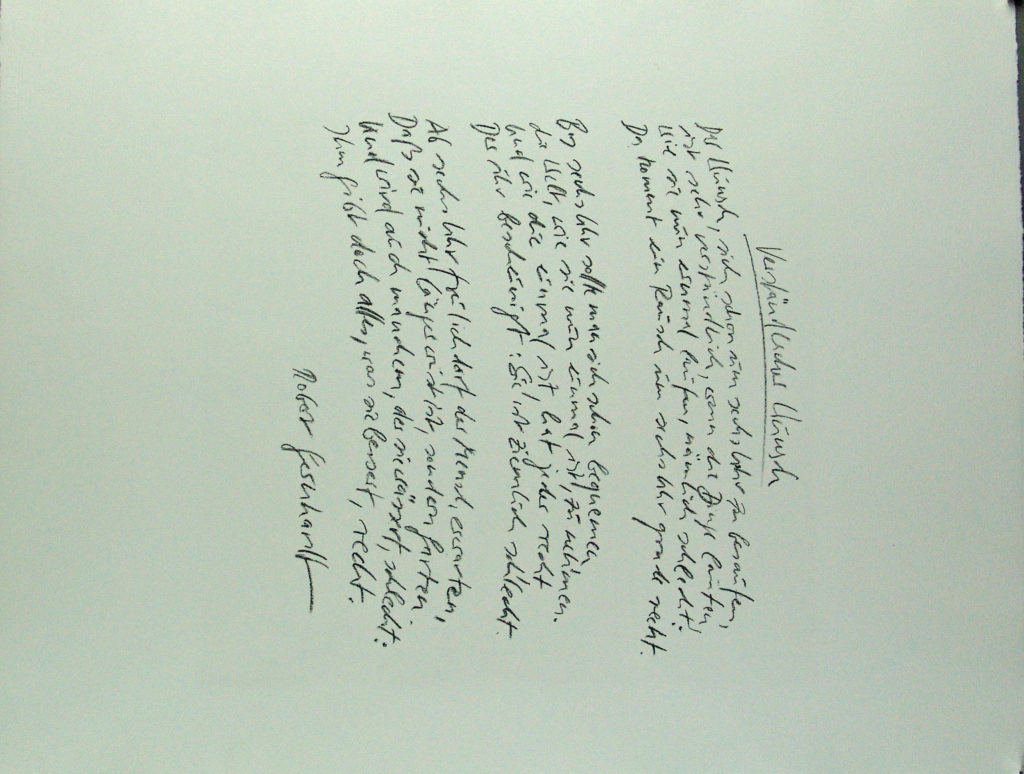 Verständlicher Wunsch
Der Wunsch, sich schon um sechs Uhr zu besaufen,
ist sehr verständlich, wenn die Dinge laufen,
wie sie nun einmal laufen, nämlich schlecht:
Da kommt ein Rausch um sechs Uhr grade recht.
Bis sechs Uhr sollte man sich schon bequemen,
die Welt, wie sie nun einmal ist, zu nehmen.
Und wie die einmal ist, hat jeder recht
Der ihr bescheinigt: Sie ist ziemlich schlecht.
Ab sechs Uhr freilich darf der Mensch erwarten,
Daß sie nicht länger wüst ist, sondern Garten.
Und wird auch manchem, der sie wässert, schlecht:
Ihm gibt doch alles, was sie bessert, recht.
Robert Gernhardt